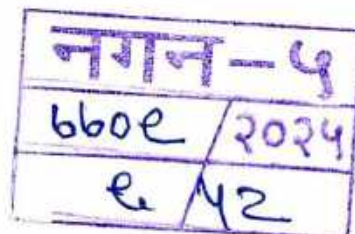 नगन-५
७७०९/२०२५
९/५२